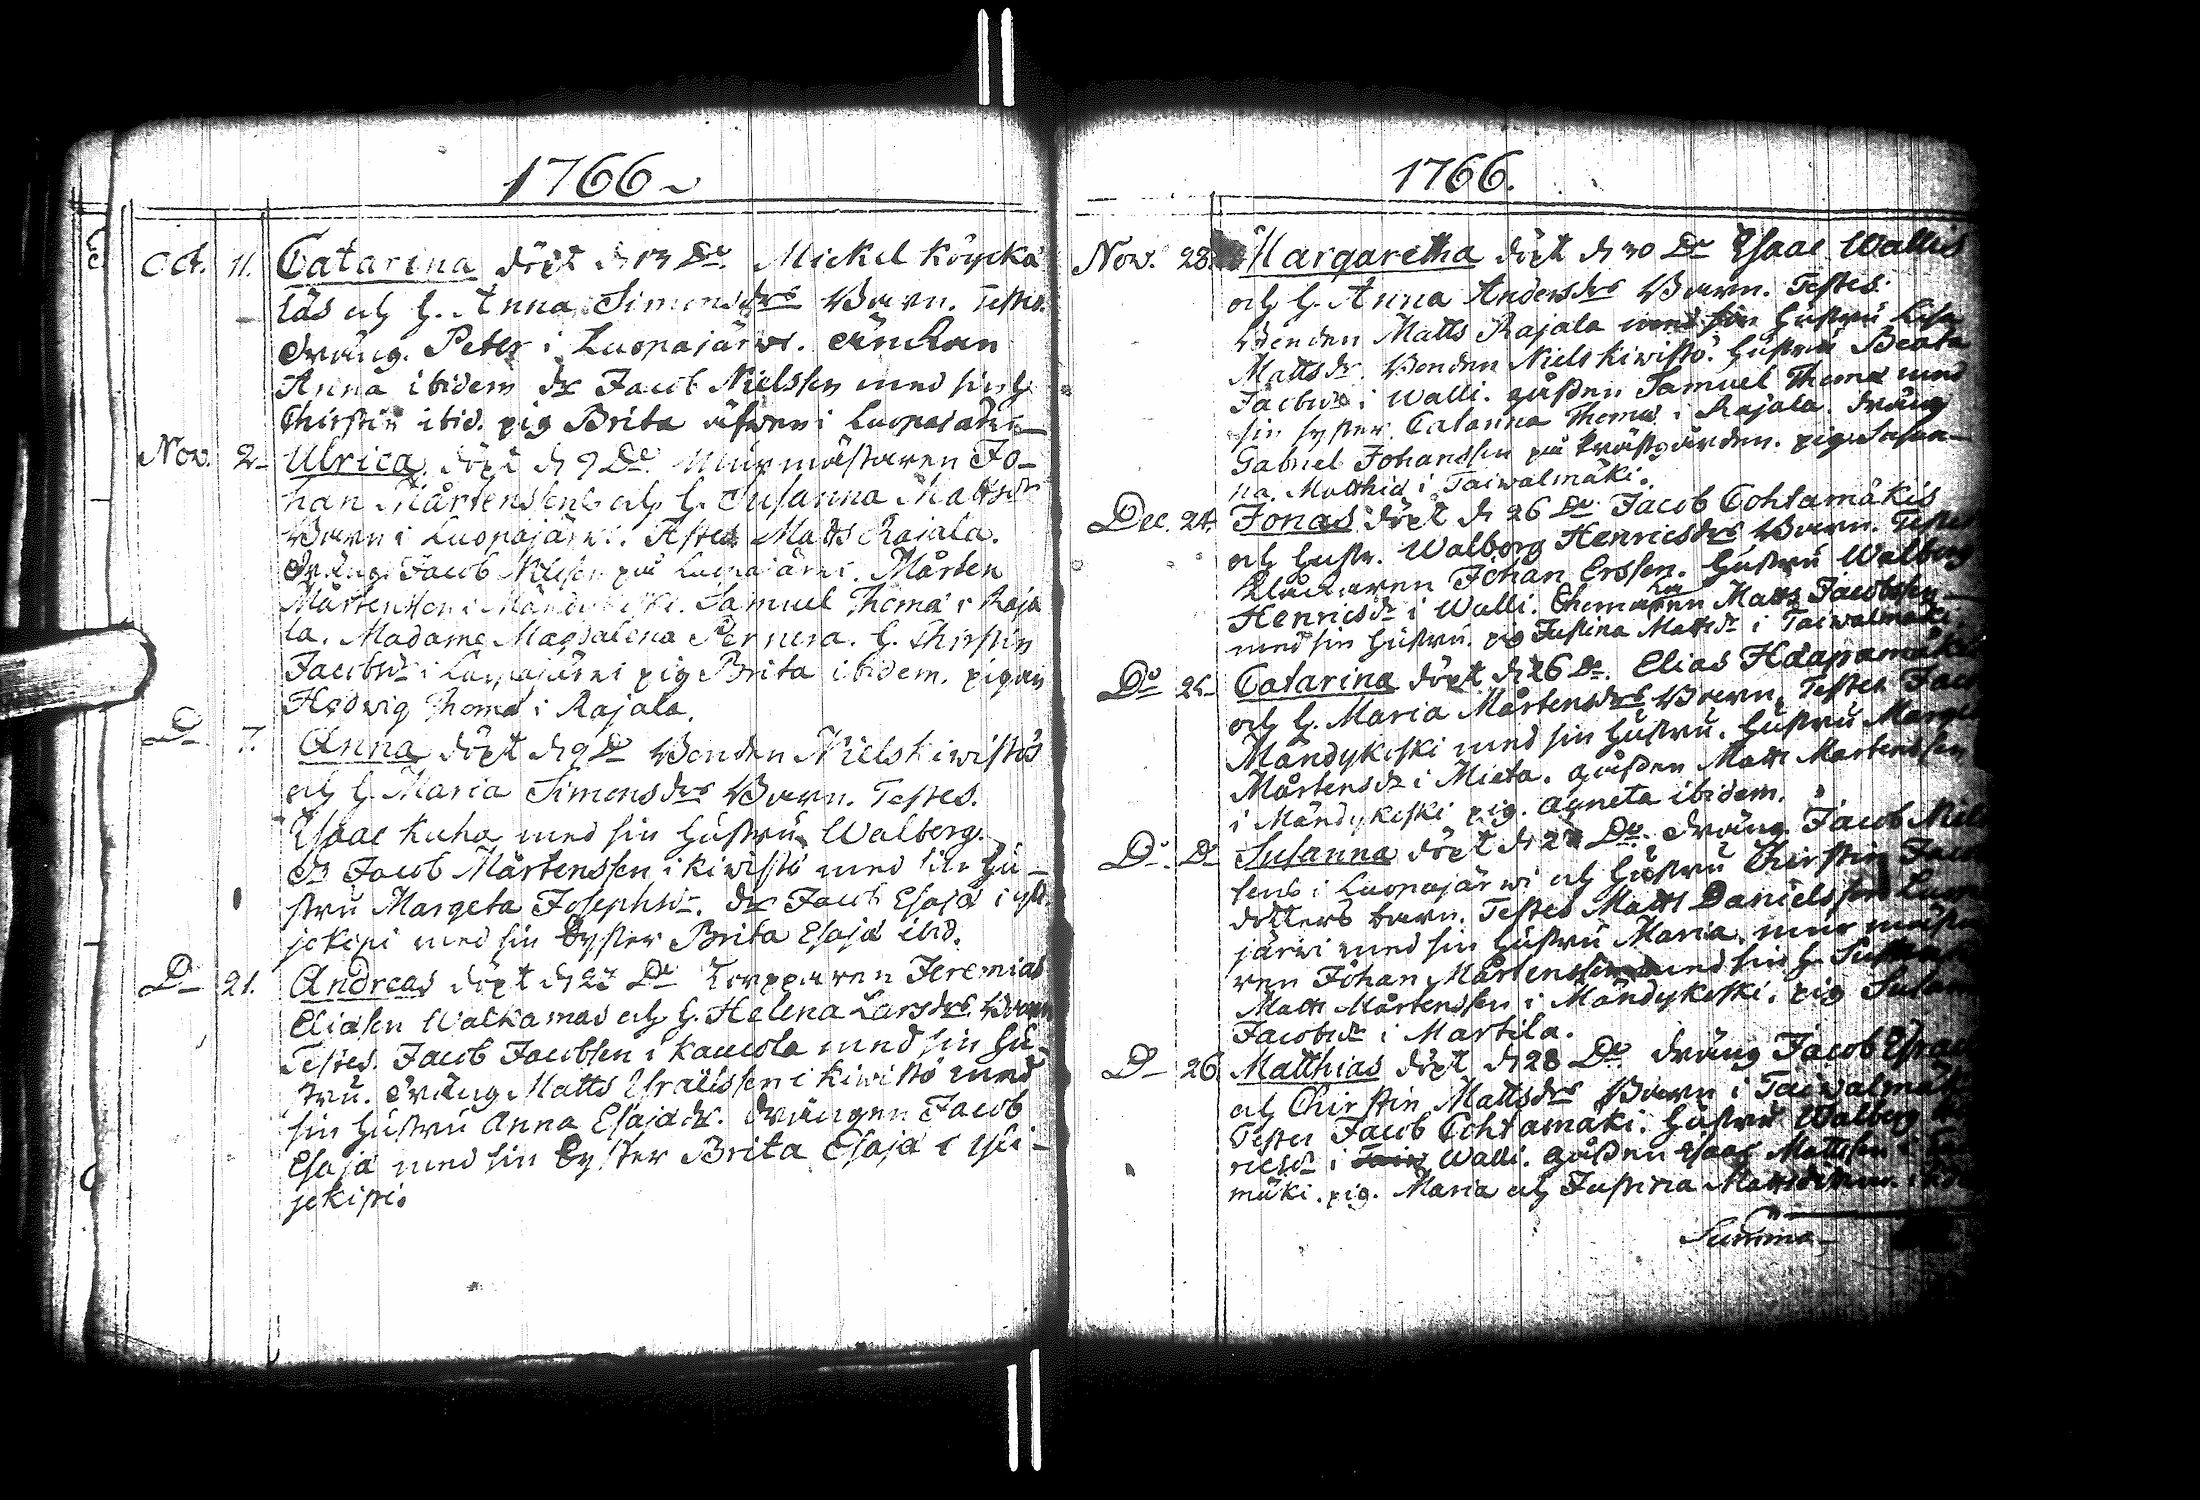 1766
Oct. 11. Catarina döpt d. 13 Do. Mickel Köyckä
läs och H. Anna Simonsdrs Barn. Testes.
dräng. Peter i Luopajärvi. Änckan
Anna ibidem dr Jacob Nielssen med sin h.
Chirstin ibid. pig Brita äfwen i Luopajärwi
Nov. 2. Ulrica döpt d. 9 Do. Murmästaren Jo-
han Mårtenssens och H. Susanna Mattsdrs
Barn i Luopajärwi. Testes Matts Rajala.
dräng Jacob Nielssen på Luopajärwi. Mårten
Mårtenssen i Mändykoski. Samuel Thomæ i Raja
la. Madame Magdalena Pernera. H. Chirstin
Jacobsdr i Luopajärwi pig Brita ibidem. pigan
Hedwig Thomæ i Rajala.
Do 7. Anna döpt d. 9 Do Bonden Niels Kiwistös
och H. Maria Simonsdrs Barn. Testes.
Esaac Kuha med sin Hustru Walborg.
dr Jacob Mårtenssen i Kiwistö med sin Hu-
stru Margeta Josephsdr. dr Jacob Esajæ i
jokipi med sin Syster Brita Esajæ ibid.
Do 21. Andreas döpt d. 23 Do Torpparen Jeremias
Eliæsen Walkamas och H. Helena Larsdrs Barn
Testes. Jacob Jacobsen i Kaucola med sin Hu-
stru. dräng Matts Esraelssen i Kiwistö med
sin Hustru Anna Esajædr. drängen Jacob
Esajæ med sin Syster Brita Esajæ i Yli-
jokipi.
1766.
Nov. 28. Margaretha döpt d. 30 Do Esaac Wallis
och H. Anna Andersdrs Barn. Testes.
Bonden Matts Rajala med sin Hustru Lisa
Mattsdr. Bonden Niels Kiwistö. Hustru Beata
Jacobsdr i Walli. gåssen Samuel Thomæ med
sin syster Catarina Thomæ i Rajala. dräng
Gabriel Johanssen på Prästgården. pig Susan-
na Matthiæ i Taiwalmäki.
Dec. 24. Jonas döpt d. 26 Do Jacob Cohtamäkis
och Hustr. Walborg Henricsdrs Barn. Testes
Klåckaren Johan Erssen. Hustru Walborg
Henricsdr i Walli. Matts Jacobssen
med sin Hustru. pig Justina Mattsdr i Taiwalmäki.
Do 25. Catarina döpt d. 26 Do. Elias Haapamäkis
och H. Maria Mårtensdrs Barn. Testes Jac
Mändykoski med sin Hustru. Hustru Marge
Mårtensdr i Mieta. gåssen Matts Mårtenssen
i Mändykoski pig. Agneta ibidem.
Do. Do Susanna döpt d. 27 Do. dräng Jacob Niels
sens i Luopajärwi och Hustru Chirstin Jacobs
dotters barn. Testes Matts Danielssen Luopa
järwi med sin Hustru Maria. mur mästa
ren Johan Mårtenssen med sin H. Susanna
Matts Mårtenssen i Mändykoski. pig Susan
Jacobsdr i Martila.
Do 26. Matthias döpt d. 28 Do dräng Jacob Esrae
och Chirstin Mattsdrs Barn i Taiwalmäki
Testes Jacob Cohtamäki. Hustru Walborg
ricsdr i Walli. gåssen Esaac Mattssen i
mäki. pig. Maria och Justina
Summa